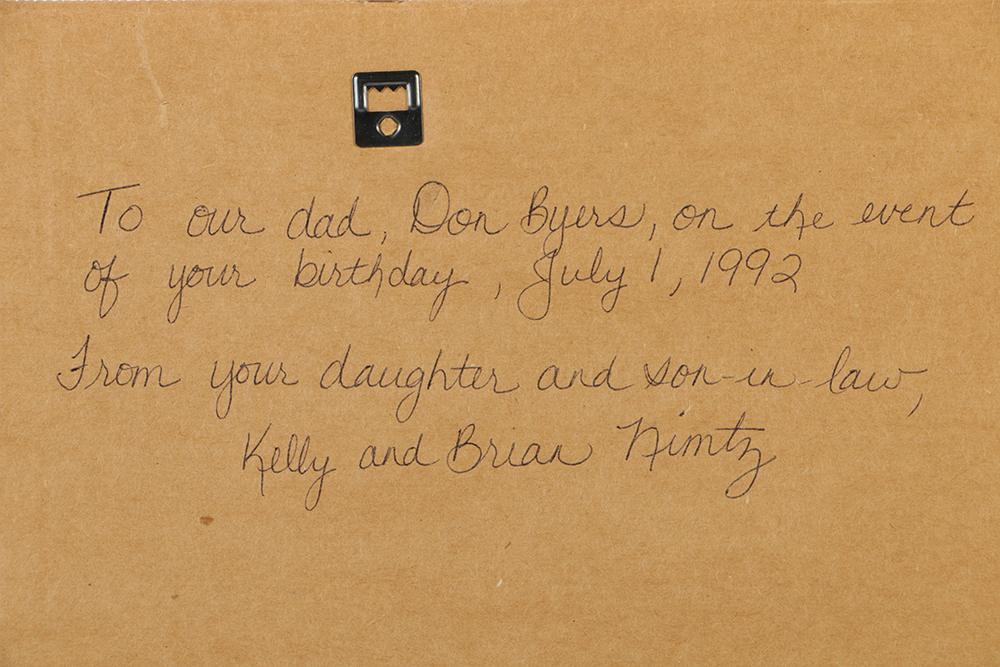 To our dad, Don Byers, on the event
of your birthday, July 1, 1992
From your daughter and son-in-law,
Kelly and Brian Nimtz